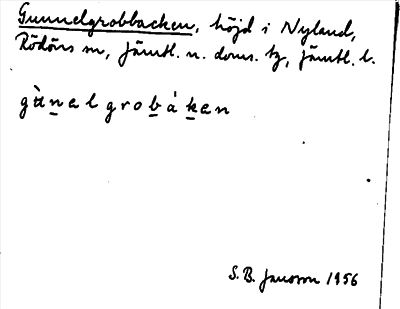 Gunnelgrobbacken, höjd i Nyland,
Rödöns sn, Jämtl. n. doms. tg, Jämtl. l.
gùn̲elgrob̲àk̲en
S.B. Jansson 1956